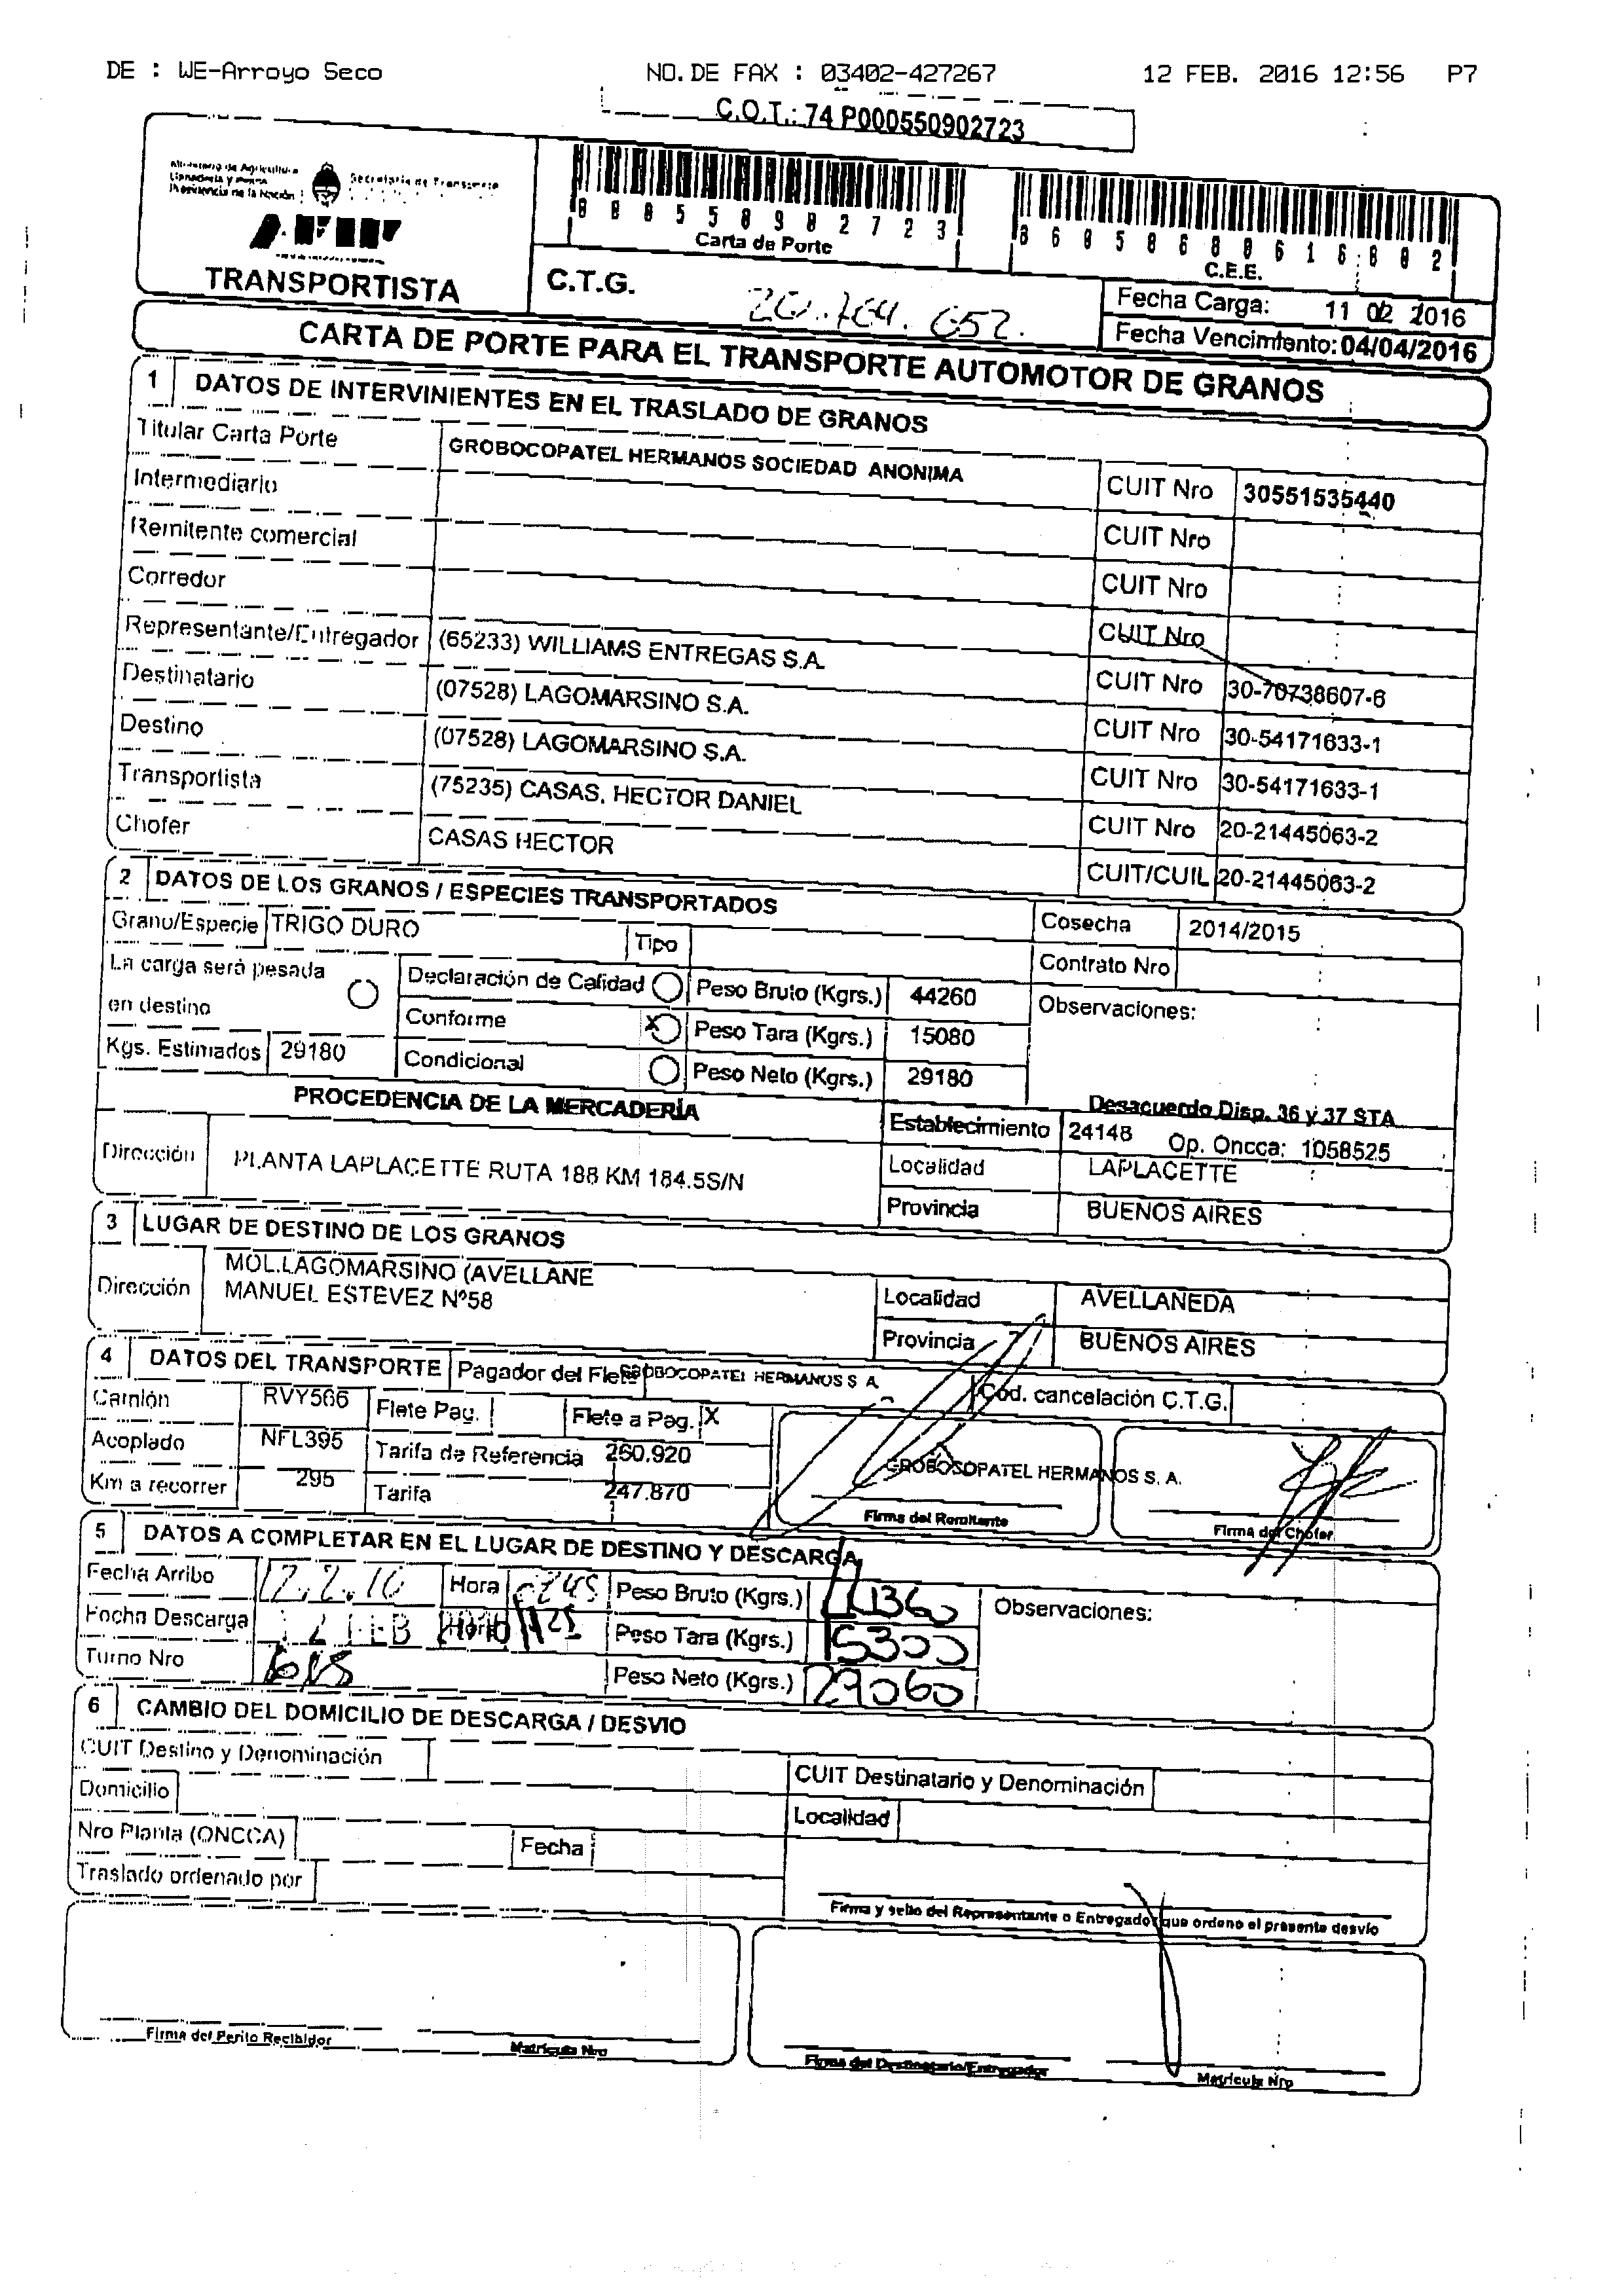 DE : WE-Arroyo Seco NO. DE FAX : 03402-427267 12 FEB. 2016 12:56 P7
C.O.T.: 74 P000550902723
Ministerio de Agricultura
Ganadería y Pesca
Presidencia de la Nación
Secretaría de Transporte
AFIP
TRANSPORTISTA
Carta de Porte
C.E.E.
C.T.G.
Fecha Carga: 11 02 2016
Fecha Vencimiento: 04/04/2016
CARTA DE PORTE PARA EL TRANSPORTE AUTOMOTOR DE GRANOS
1 DATOS DE INTERVINIENTES EN EL TRASLADO DE GRANOS
Titular Carta Porte GROBOCOPATEL HERMANOS SOCIEDAD ANONIMA CUIT Nro 30551535440
Intermediario CUIT Nro
Remitente comercial CUIT Nro
Corredor CUIT Nro
Representante/Entregador (65233) WILLIAMS ENTREGAS S.A. CUIT Nro 30-70738607-6
Destinatario (07528) LAGOMARSINO S.A. CUIT Nro 30-54171633-1
Destino (07528) LAGOMARSINO S.A. CUIT Nro 30-54171633-1
Transportista (75235) CASAS, HECTOR DANIEL CUIT Nro 20-21445063-2
Chofer CASAS HECTOR CUIT/CUIL 20-21445063-2
2 DATOS DE LOS GRANOS / ESPECIES TRANSPORTADOS
Grano/Especie TRIGO DURO Tipo Cosecha 2014/2015
La carga será pesada
en destino
Declaración de Calidad Peso Bruto (Kgrs.) 44260 Contrato Nro
Conforme X Peso Tara (Kgrs.) 15080 Observaciones:
Kgs. Estimados 29180 Condicional Peso Neto (Kgrs.) 29180
Desacuerdo Disp. 36 y 37 STA
PROCEDENCIA DE LA MERCADERÍA
Establecimiento 24148 Op. Oncca: 1058525
Dirección PLANTA LAPLACETTE RUTA 188 KM 184.5S/N Localidad LAPLACETTE
Provincia BUENOS AIRES
3 LUGAR DE DESTINO DE LOS GRANOS
Dirección MOL.LAGOMARSINO (AVELLANE
MANUEL ESTEVEZ Nº58
Localidad AVELLANEDA
Provincia BUENOS AIRES
4 DATOS DEL TRANSPORTE Pagador del Flete GROBOCOPATEL HERMANOS S A Cód. cancelación C.T.G.
Camión RVY566 Flete Pag. Flete a Pag. X
Acoplado NFL395 Tarifa de Referencia 260.920
Km a recorrer 295 Tarifa 247.870
GROBOSOPATEL HERMANOS S. A.
Firma del Remitente Firma del Chofer
5 DATOS A COMPLETAR EN EL LUGAR DE DESTINO Y DESCARGA
Fecha Arribo 12.2.16 Hora Peso Bruto (Kgrs.) 44360 Observaciones:
Fecha Descarga 12 FEB 2016 Hora Peso Tara (Kgrs.) 15300
Turno Nro Peso Neto (Kgrs.) 29060
6 CAMBIO DEL DOMICILIO DE DESCARGA / DESVIO
CUIT Destino y Denominación CUIT Destinatario y Denominación
Domicilio Localidad
Nro Planta (ONCCA) Fecha
Traslado ordenado por
Firma y sello del Representante o Entregador que ordeno el presente desvío
Firma del Perito Recibidor Matrícula Nro Firma del Destinatario/Entregador Matrícula Nro